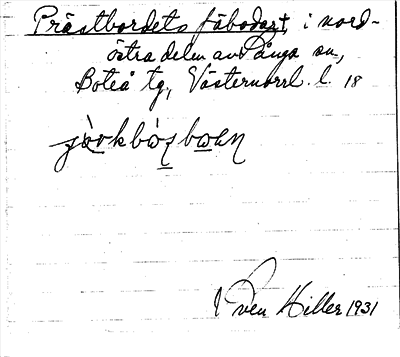 Prästbordets fäbodar, i nord-
östra delen av Långa sn,
Boteå tg, Västernorrl. l. 18
Sven Hiller 1931